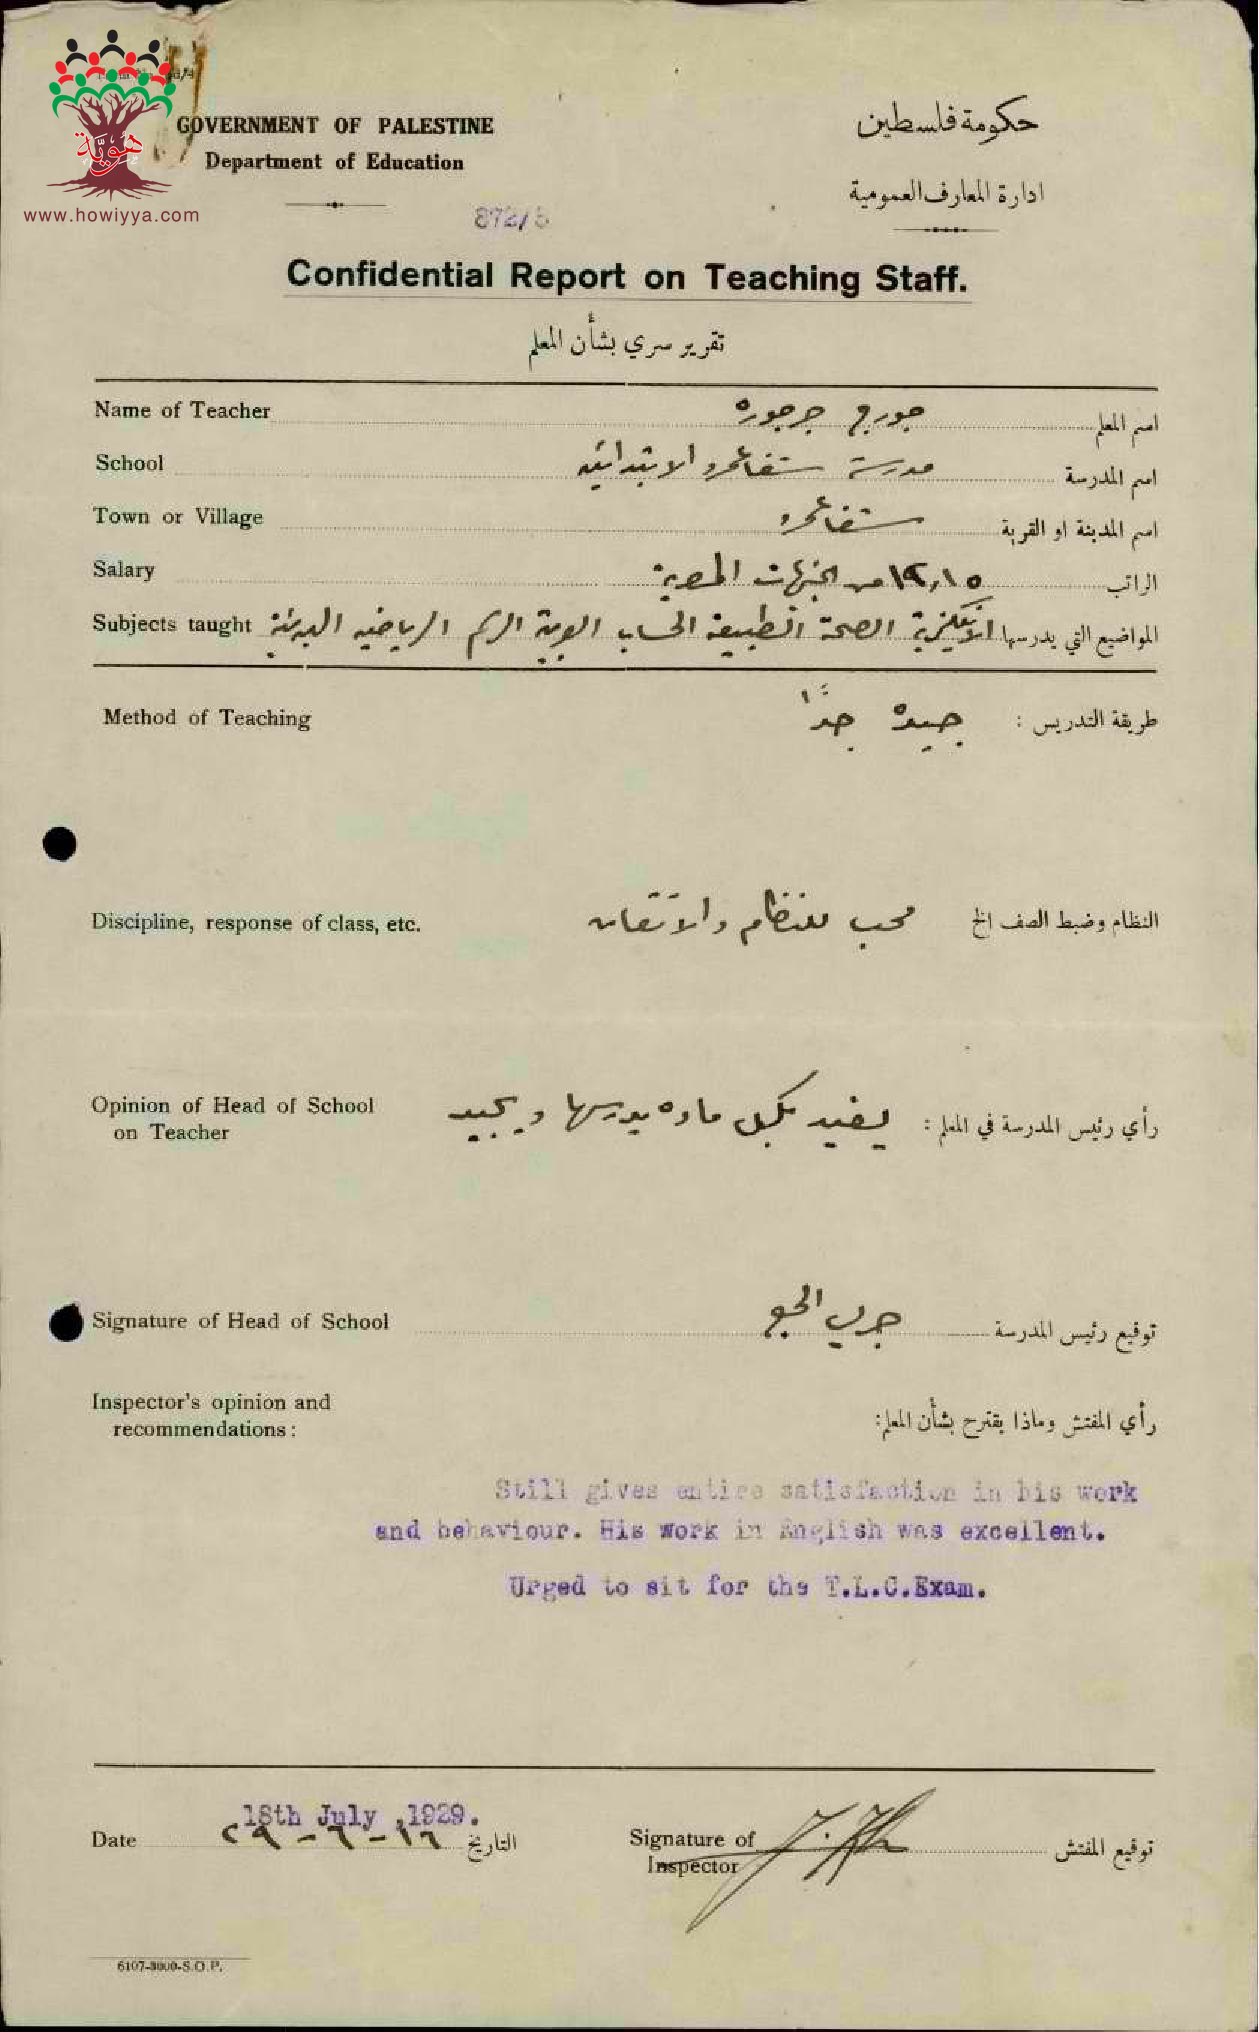 هوية
www.howiyya.com
GOVERNMENT OF PALESTINE
Department of Education
حكومة فلسطين
ادارة المعارف العمومية
Confidential Report on Teaching Staff.
تقرير سري بشأن المعلم
Name of Teacher جورج جرجوره اسم المعلم
School مدرسة شفاعمرو الابتدائيه اسم المدرسة
Town or Village شفاعمرو اسم المدينة او القرية
Salary من الجنيهات المصرية الراتب
Subjects taught الانكليزية الصحة الطبيعة الحساب العربية الرسم الرياضيه البدنية المواضيع التي يدرسها
Method of Teaching جيده جدًا طريقة التدريس :
Discipline, response of class, etc. محب للنظام والاتقان النظام وضبط الصف الخ
Opinion of Head of School يفيد بكل ماده يدرسها ويجيد رأي رئيس المدرسة في المعلم :
on Teacher
Signature of Head of School توقيع رئيس المدرسة
Inspector's opinion and رأي المفتش وماذا يقترح بشأن المعلم:
recommendations :
Still gives entire satisfaction in his work
and behaviour. His work in English was excellent.
Urged to sit for the T.L.C.Exam.
18th July ,1929.
Date ١٦-٦-٢٩ التاريخ
Signature of توقيع المفتش
Inspector
6107-3000-S.O.P.